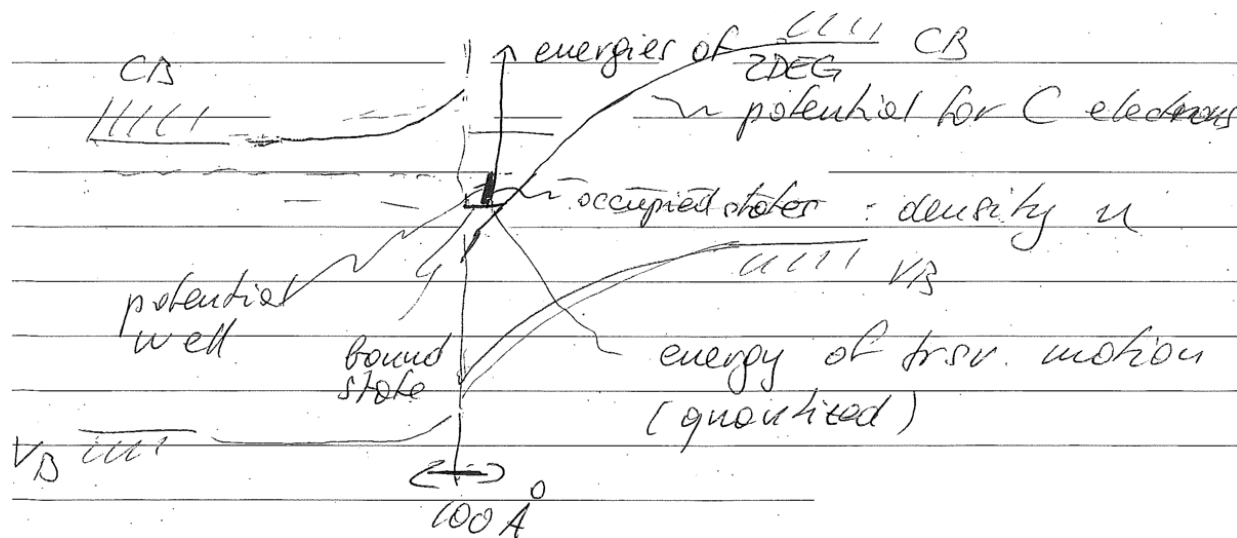 energies of 2DEG
CB
CB
potential for C electrons
occupied states : density n
VB
potential well
bound state
energy of trsv. motion
(quantized)
VB
100 Å